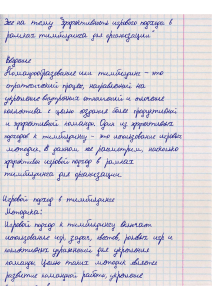 Эссе на тему "Эффективность игрового подхода в
рамках тимбилдинга для организации"
Введение
Командообразование или тимбилдинг - это
стратегический процесс, направленный на
укрепление внутренних отношений и
коллектива с целью создания более продуктивной
и эффективной команды. Один из эффективных
подходов к тимбилдингу - это использование игровых
методик, в данном эссе рассмотрим, насколько
эффективен игровой подход в рамках
тимбилдинга для организации.
Игровой подход к тимбилдингу
Методика:
Игровой подход к тимбилдингу включает
использование игр, задач, квестов, ролевых игр и
командных упражнений для укрепления
команды. Целью таких методик является
развитие командной работы, укрепление